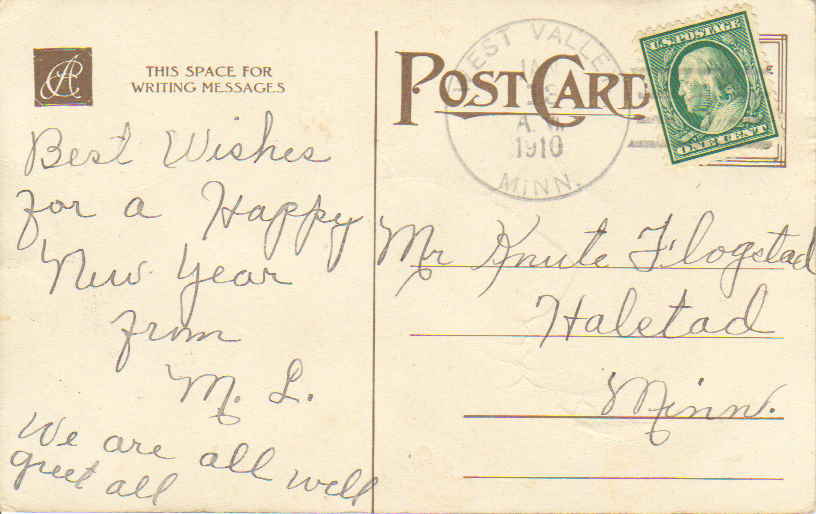 THIS SPACE FOR
WRITING MESSAGES
POST CARD
WEST VALLEY
A.M
1910
MINN.
U.S. POSTAGE
ONE CENT
Best Wishes
for a Happy
New Year
from
M. L.
We are all well
greet all
Mr Knute Flogstad
Halstad
Minn.